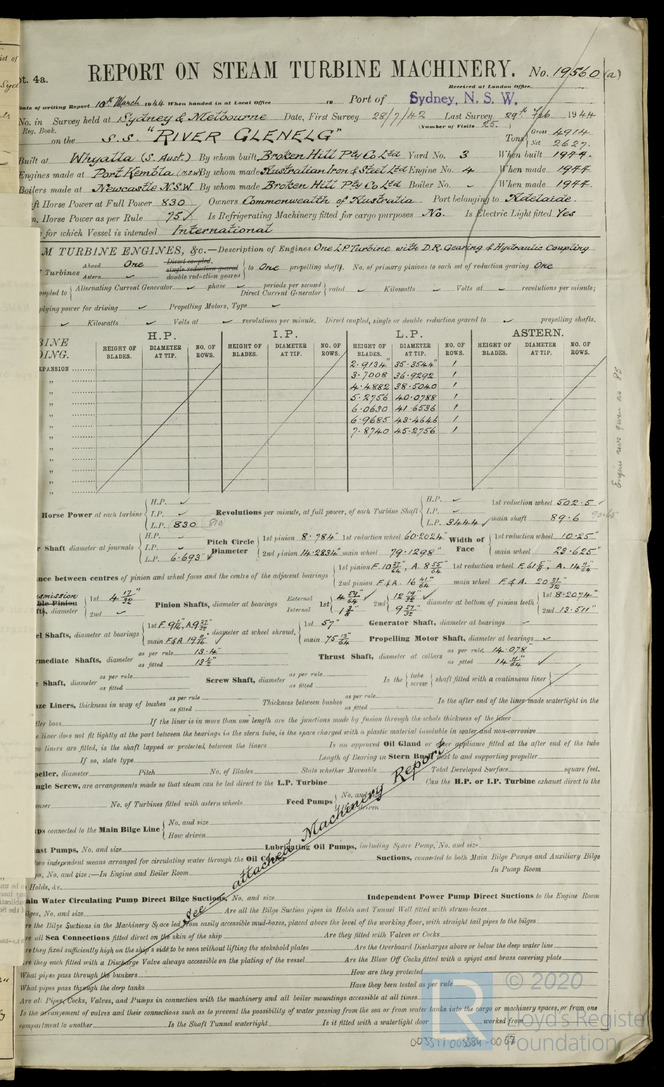 pt. 4a.
REPORT ON STEAM TURBINE MACHINERY. No. 19560 (a)
Received at London Office
Date of writing Report 10th March 1944 When handed in at Local Office 19 Port of Sydney, N. S. W.
No. in Survey held at Sydney & Melbourne Date, First Survey 28/7/42 Last Survey 29th Feb 1944
Reg. Book. (Number of Visits 25.
on the S.S. "RIVER GLENELG" Tons Gross 4914. Net 2627.
Built at Whyalla (S. Aust) By whom built Broken Hill Pty Co Ltd Yard No. 3 When built 1944.
Engines made at Port Kembla (NSW) By whom made Australian Iron & Steel Ltd Engine No. 4 When made 1944.
Boilers made at Newcastle N.S.W. By whom made Broken Hill Pty Co Ltd Boiler No. When made 1944.
Shaft Horse Power at Full Power 830 Owners Commonwealth of Australia Port belonging to Adelaide.
Horse Power as per Rule 751 Is Refrigerating Machinery fitted for cargo purposes No. Is Electric Light fitted Yes
for which Vessel is intended International
M TURBINE ENGINES, &c.—Description of Engines One L.P. Turbine with D.R. Gearing & Hydraulic Coupling
Turbines Ahead One Direct coupled, single reduction geared double reduction geared to One propelling shafts. No. of primary pinions to each set of reduction gearing One
Astern
coupled to Alternating Current Generator phase periods per second Direct Current Generator rated Kilowatts Volts at revolutions per minute;
plying power for driving Propelling Motors, Type
Kilowatts Volts at revolutions per minute. Direct coupled, single or double reduction geared to propelling shafts.
H.P. I.P. L.P. ASTERN.
HEIGHT OF BLADES. DIAMETER AT TIP. NO. OF ROWS. HEIGHT OF BLADES. DIAMETER AT TIP. NO. OF ROWS. HEIGHT OF BLADES. DIAMETER AT TIP. NO. OF ROWS. HEIGHT OF BLADES. DIAMETER AT TIP. NO. OF ROWS.
EXPANSION 2.9134" 35.3544" 1
3.7008 36.9292 1
4.4882 38.5040 1
5.2756 40.0788 1
6.0630 41.6536 1
6.9685 43.4646 1
7.8740 45.2756 1
Horse Power at each turbine H.P. I.P. L.P. 830 810 Revolutions per minute, at full power, of each Turbine Shaft H.P. I.P. L.P. 3444 1st reduction wheel 502.5 main shaft 89.6
Shaft diameter at journals H.P. I.P. L.P. 6.693" Pitch Circle Diameter 1st pinion 8.784" 1st reduction wheel 60.2024" 2nd pinion 14.2834" main wheel 79.1298" Width of Face 1st reduction wheel 10.25" main wheel 23.625"
ance between centres of pinion and wheel faces and the centre of the adjacent bearings 1st pinion 1st reduction wheel
2nd pinion main wheel
Pinion Shafts, diameter at bearings External Internal 1st 2nd diameter at bottom of pinion teeth 1st 8.2074" 2nd 13.511"
el Shafts, diameter at bearings 1st main diameter at wheel shroud, 1st 57" main Generator Shaft, diameter at bearings
Propelling Motor Shaft, diameter at bearings
rmediate Shafts, diameter as per rule 13.14" as fitted 13½" Thrust Shaft, diameter at collars as per rule 14.078" as fitted
Shaft, diameter as per rule as fitted Screw Shaft, diameter as per rule as fitted Is the tube screw shaft fitted with a continuous liner
ze Liners, thickness in way of bushes as per rule as fitted Thickness between bushes as per rule as fitted Is the after end of the liner made watertight in the
ller boss If the liner is in more than one length are the junctions made by fusion through the whole thickness of the liner
e liner does not fit tightly at the part between the bearings in the stern tube, is the space charged with a plastic material insoluble in water and non-corrosive
o liners are fitted, is the shaft lapped or protected between the liners Is an approved Oil Gland or other appliance fitted at the after end of the tube
If so, state type Length of Bearing in Stern Bush next to and supporting propeller
peller, diameter Pitch No. of Blades State whether Moveable Total Developed Surface square feet.
ngle Screw, are arrangements made so that steam can be led direct to the L.P. Turbine Can the H.P. or I.P. Turbine exhaust direct to the
enser No. of Turbines fitted with astern wheels Feed Pumps No. and size How driven
ps connected to the Main Bilge Line No. and size How driven
See attached Machinery Report
ast Pumps, No. and size Lubricating Oil Pumps, including Spare Pump, No. and size
wo independent means arranged for circulating water through the Oil Cooler Suctions, connected to both Main Bilge Pumps and Auxiliary Bilge
ps, No. and size:—In Engine and Boiler Room In Pump Room
Holds, &c.
ain Water Circulating Pump Direct Bilge Suctions, No. and size Independent Power Pump Direct Suctions to the Engine Room
ilges, No. and size Are all the Bilge Suction pipes in Holds and Tunnel Well fitted with strum-boxes
re the Bilge Suctions in the Machinery Space led from easily accessible mud-boxes, placed above the level of the working floor, with straight tail pipes to the bilges
re all Sea Connections fitted direct on the skin of the ship Are they fitted with Valves or Cocks
re they fixed sufficiently high on the ship's side to be seen without lifting the stokehold plates Are the Overboard Discharges above or below the deep water line
re they each fitted with a Discharge Valve always accessible on the plating of the vessel Are the Blow Off Cocks fitted with a spigot and brass covering plate
What pipes pass through the bunkers How are they protected
What pipes pass through the deep tanks Have they been tested as per rule
Are all Pipes, Cocks, Valves, and Pumps in connection with the machinery and all boiler mountings accessible at all times
Is the arrangement of valves and their connections such as to prevent the possibility of water passing from the sea or from water tanks into the cargo or machinery spaces, or from one
compartment to another Is the Shaft Tunnel watertight Is it fitted with a watertight door worked from
© 2020
Lloyd's Register
Foundation
003511-003584-0067